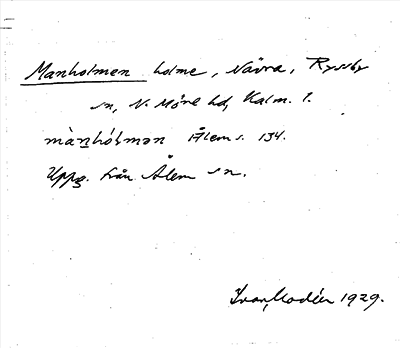 Manholmen holme, Návra, Ryssby
sn, N. Möre hd, Kalm. l.
mànhólmən Ålem s. 134.
Uppg. från Ålem sn.
Ivar Modéer 1929.